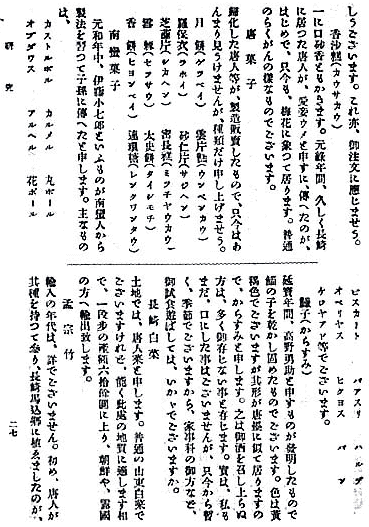 しうございます。これ亦、御注文に應じませう。
香沙糕(カウサカウ)
一に口砂香ともかきます。元祿年間、久しく長崎
に居つた唐人が、愛妾ウメと申すに、傳へたのが、
はじめで、只今も、梅花に象つて居ります。普通
のらくがんの樣なものでございます。
唐菓子
歸化した唐人等が、製造販賣したもので、只今はあ
んまり見うけませんが、種類だけ申し上げませう。
月餅(ゲツペイ)
雲片糕(ウンペンカウ)
羅保衣(ラホイ)
砂仁片(サジヘン)
芝蔴片(シバカン)
密長杠(ミツチヤウカウ)
雪棗(セツサウ)
太史餅(タイシモチ)
香餅(ヒヨンペイ)
連環糖(レンクワンタウ)
南蠻菓子
元和年中、伊藤小七郎といふものが南蠻人から
製法を習つて子孫に傳へたと申します。主なもの
は、
カストルボル カルメル 丸ボール
オブダワス アルヘル 花ボール
研究
ビスカート パアスリ ハルブ
オベリヤス ヒクヨス パン
ケロヤアソ等でございます。
鯔子(からすみ)
延寶年間、高野勇助と申すものが發明したもので
鯔の子を乾かし固めたものでございます。色は黄
褐色でございますが其形が唐墨に似て居りますの
で、からすみと申します。之は御酒を召し上らぬ
方は、多く御存じない事と存じます。實は、私も
まだ、口にした事はございませんが、只今から暫
く、季節でございますから、家事科の御方など、
御試食遊ばしては、いかゞでございますか。
長崎白菜
土地では、唐人菜と申します。普通の山東白菜で
ございますけれど、能く此處の地質に適します相
で、一段步の產額六十餘圓に上り、朝鮮や、露國
の方へ輸出致します。
孟宗竹
輸入の年代は、詳でございません。初め、唐人が
其種を持つて參り、長崎馬込鄕に植ゑましたのが、
二七